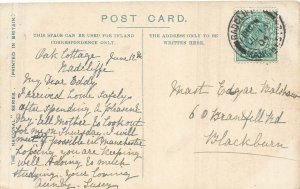 POST CARD.
THIS SPACE CAN BE USED FOR INLAND
CORRESPONDENCE ONLY.
THE ADDRESS ONLY TO BE
WRITTEN HERE.
(PRINTED IN BRITAIN.)
SERIES
THE
Oak Cottage June 19th
Radcliffe
My Dear Eddy
I arrived home safely
after spending a pleasant
day. Tell Mother to look out
for me on Thursday. I will
meet if possible in Manchester
Hoping you are keeping
well & doing so much
studying. Your loving
Aunty. Sussy
Mast Edgar
60
Blackburn